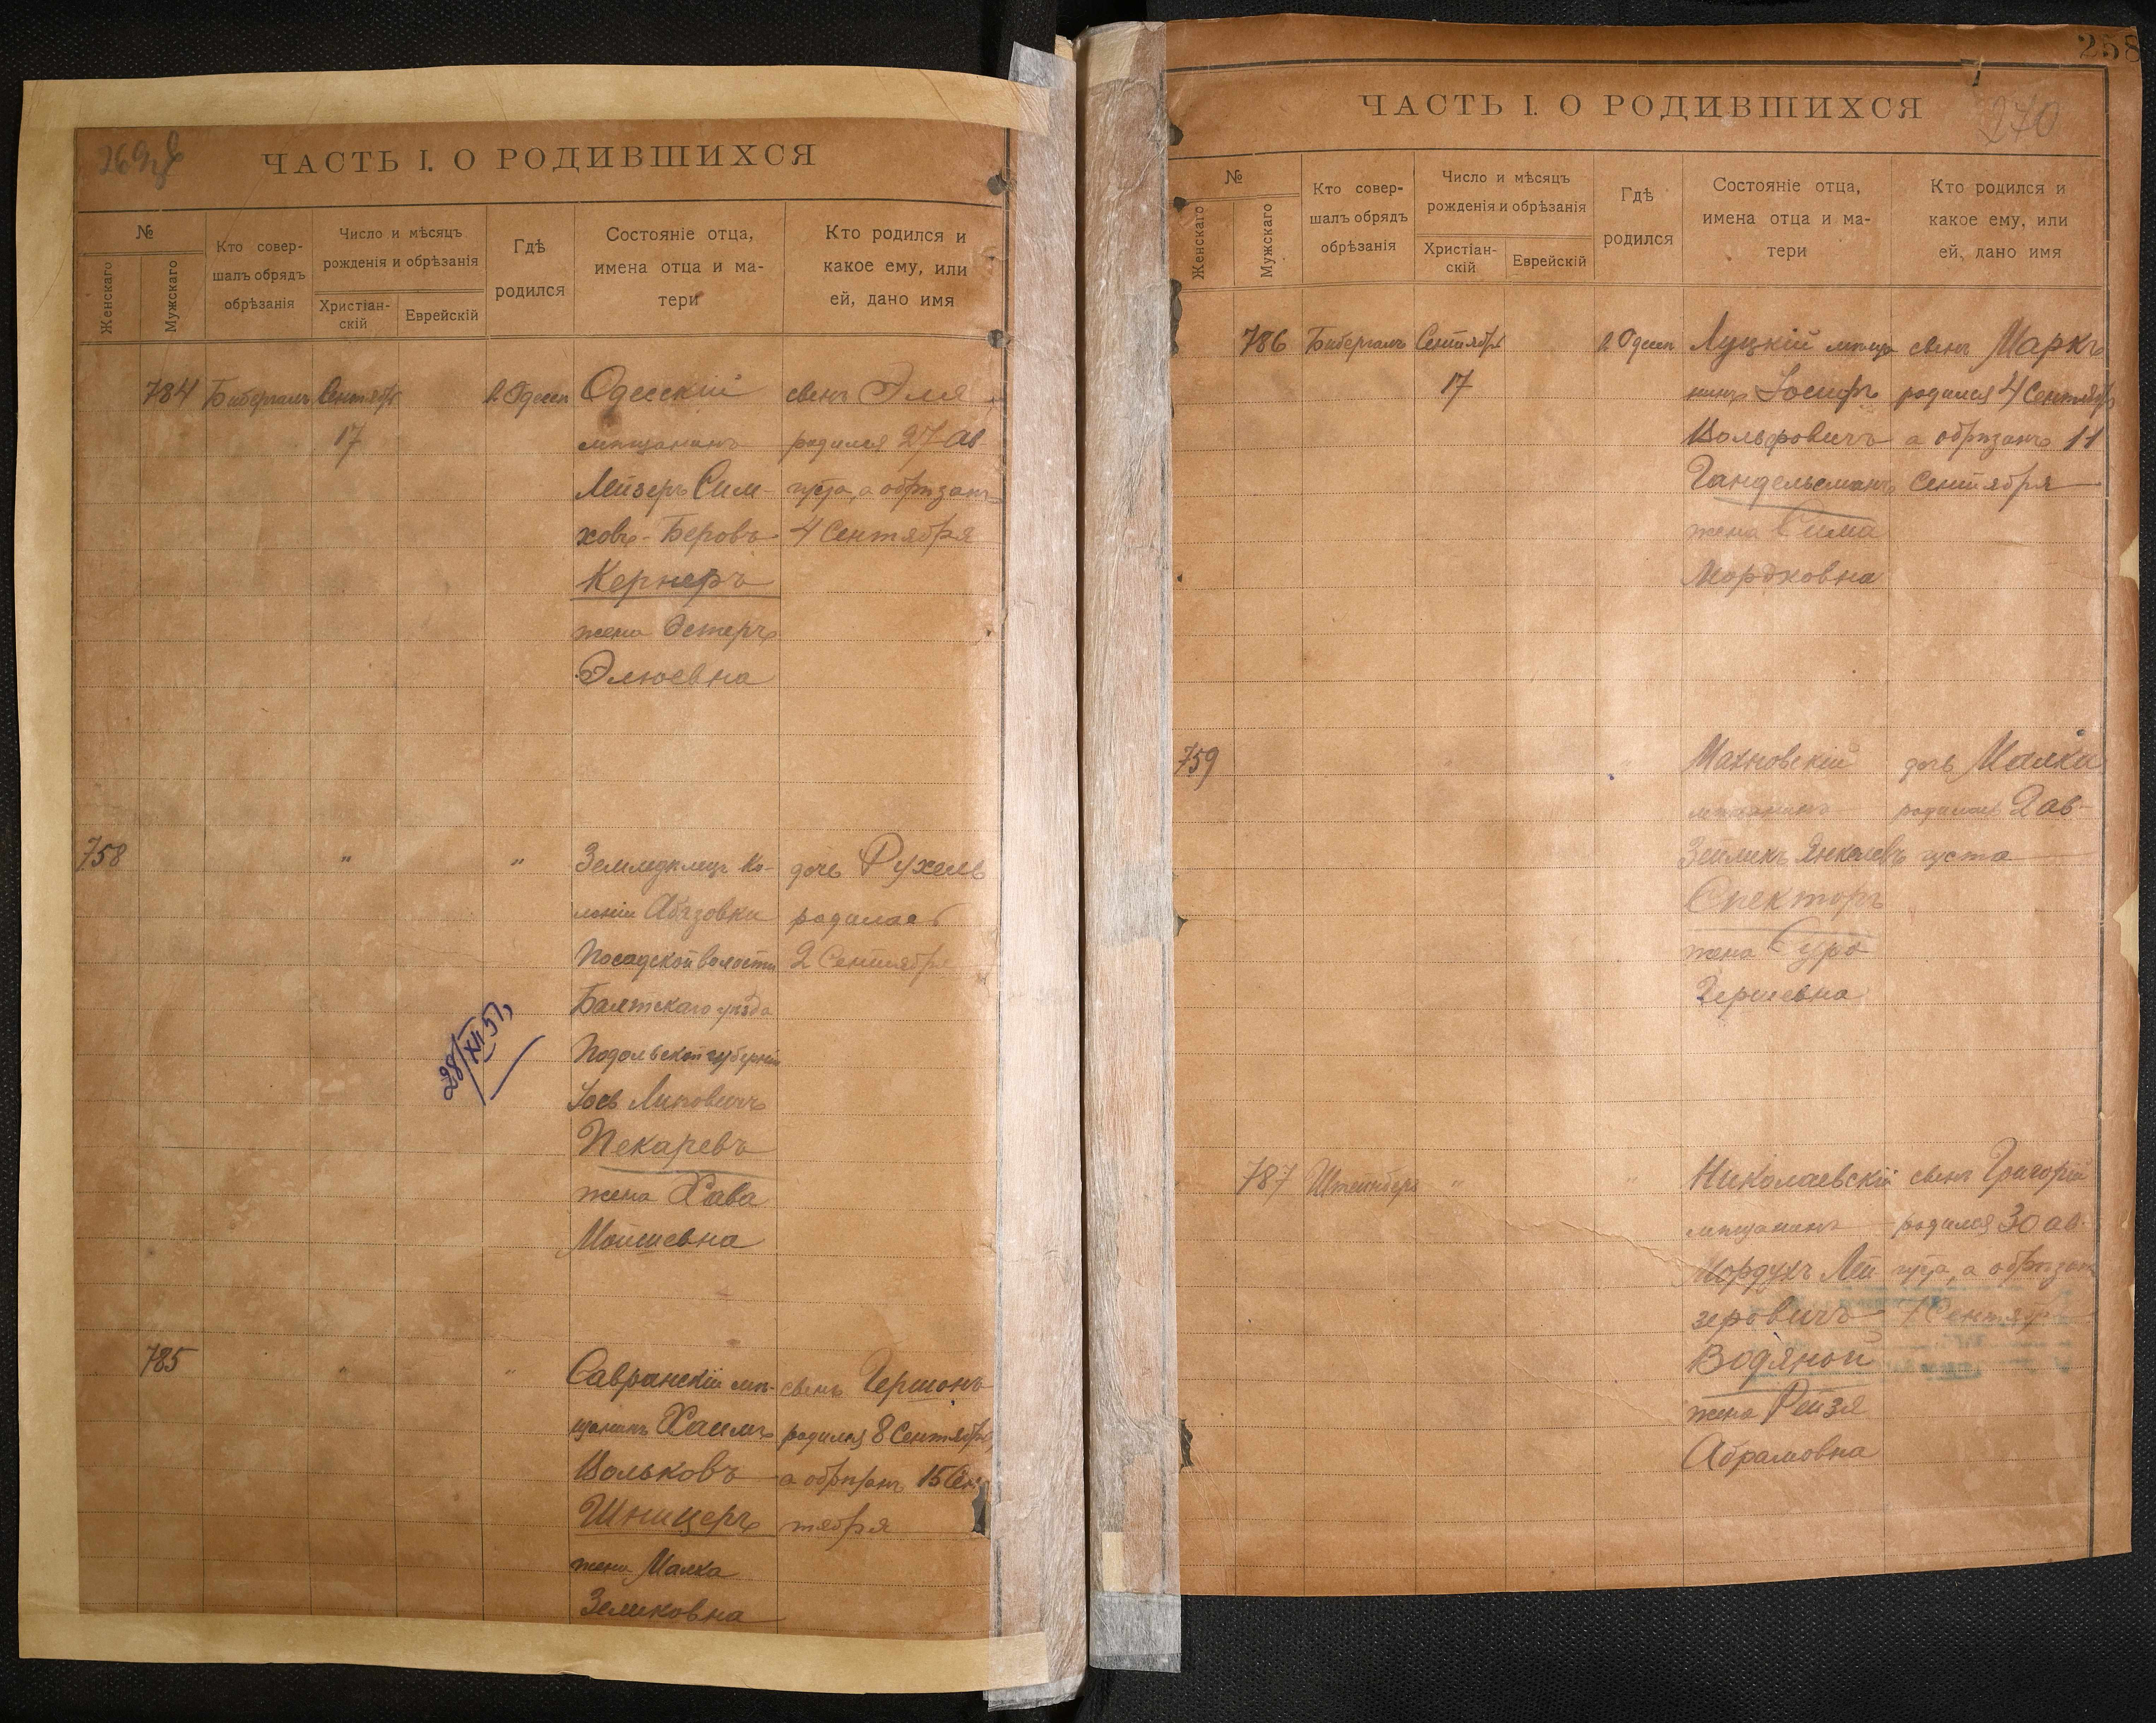 ЧАСТЬ I. О РОДИВШИХСЯ
№
Женскаго
Мужскаго
Кто совер-
шалъ обрядъ
обрѣзанія
Число и мѣсяцъ
рожденія и обрѣзанія
Христіан-
скій
Еврейскій
Гдѣ
родился
Состояніе отца,
имена отца и ма-
тери
Кто родился и
какое ему, или
ей, дано имя
784
Бибергалъ
Сентября
17
г. Одесс
Одесскій
мѣщанинъ
Лейзеръ Сим-
ховъ-Беровъ
Кернеръ
жена Эстеръ
Элюевна
сынъ Эля
родился 27 Ав-
густа, а обрѣзанъ
4 Сентября
758
"
"
Земледѣлецъ ко-
лоніи Абазовки
Посадской волости
Балтскаго уѣзда
Подольской губерніи
Іось Липовичъ
Пекаревъ
жена Хава
Мошиевна
дочь Рухель
родилась
2 Сентября
28/XII 51
785
"
"
Савранскій мѣ-
щанинъ Хаимъ
Вольковъ
Шницеръ
жена Малка
Зеликовна
сынъ Гершонъ
родился 8 Сентября,
а обрѣзанъ 15 Сен-
тября
258
ЧАСТЬ I. О РОДИВШИХСЯ
270
№
Женскаго
Мужскаго
Кто совер-
шалъ обрядъ
обрѣзанія
Число и мѣсяцъ
рожденія и обрѣзанія
Христіан-
скій
Еврейскій
Гдѣ
родился
Состояніе отца,
имена отца и ма-
тери
Кто родился и
какое ему, или
ей, дано имя
786
Бибергалъ
Сентября
17
г. Одесс
Луцкій мѣща-
нинъ Іосифъ
Вольфовичъ
Гандельсманъ
жена Сима
Мордковна
сынъ Маркъ
родился 4 Сентября
а обрѣзанъ 11
Сентября
759
Махновскій
мѣщанинъ
Зейликъ Янкелевъ
Спекторъ
жена Сура
Гершевна
дочь Малка
родилась 2 ав-
густа
787
Штейнберъ
"
"
Николаевскій
мѣщанинъ
Мордухъ Лей
зеровичъ
Водяной
жена Рейзя
Абрамовна
сынъ Григорій
родился 30 ав-
густа, а обрѣзан
7 Сентяр